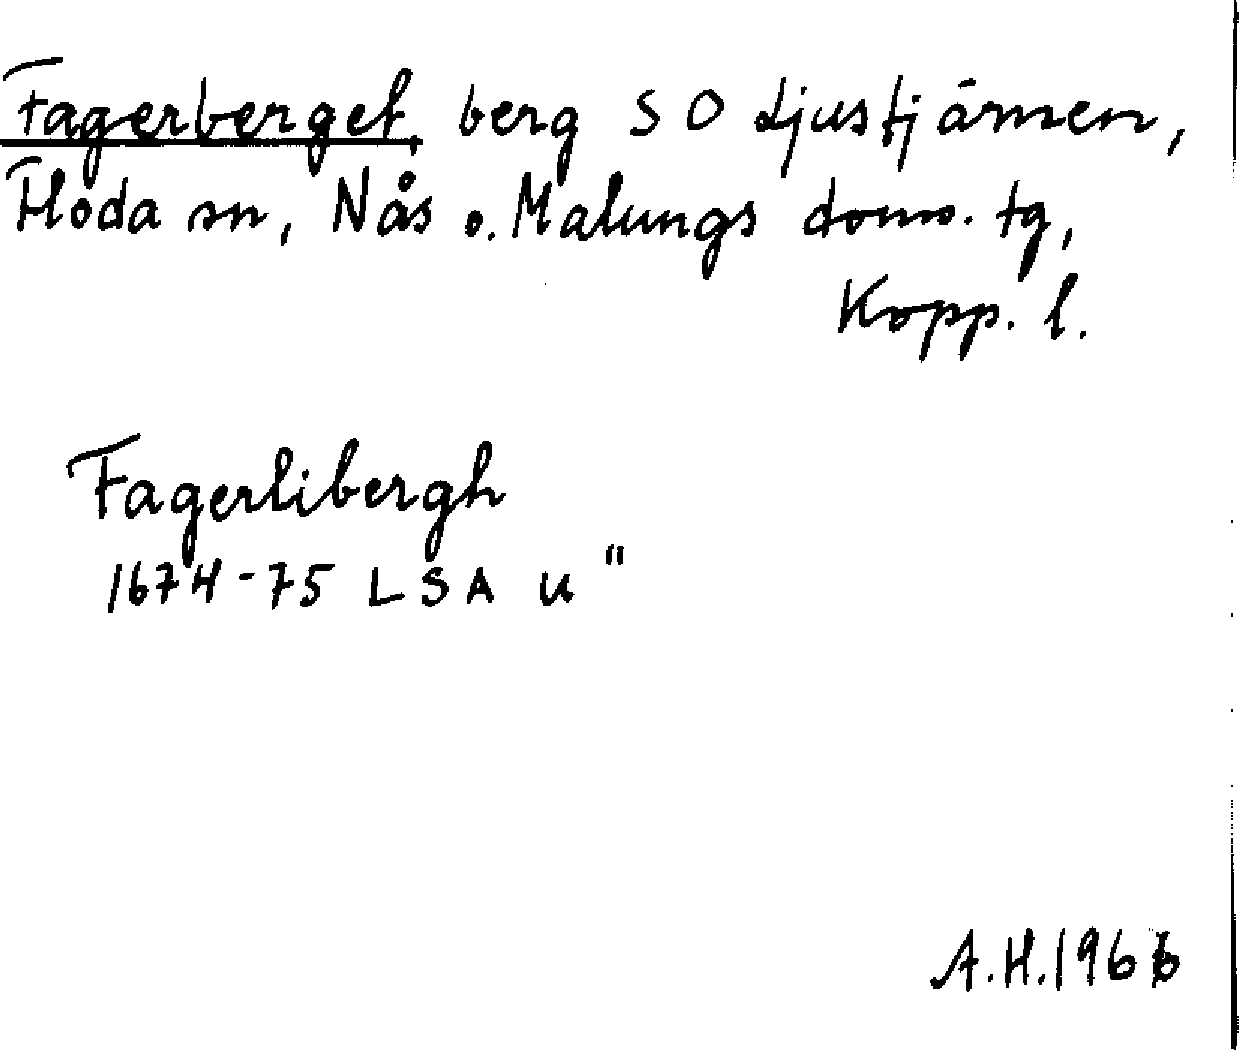 Fagerberget, berg S O Ljustjärnen,
Floda sn, Nås o. Malungs doms. tg,
Kopp. l.
Fagerlibergh
1674-75 LSA u "
A.H.1966